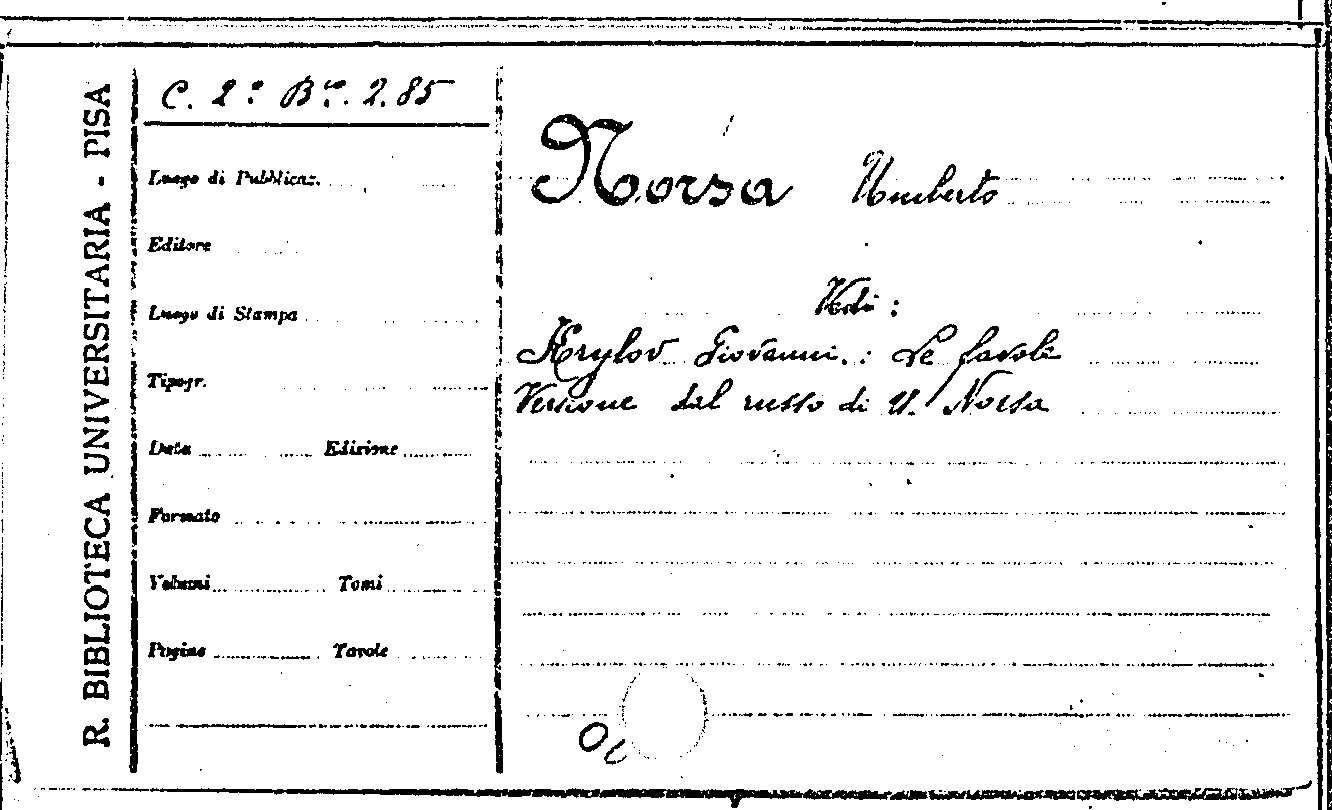 R. BIBLIOTECA UNIVERSITARIA - PISA
C. 2º. Bᵗᵃ. 2. 85
Luogo di Pubblicaz.
Editore
Luogo di Stampa
Tipogr.
Data Edizione
Formato
Volumi Tomi
Pagine Tavole
Norsa Umberto
Vedi :
Krylov Giovanni. : Le favole
Versione dal russo di U. Norsa